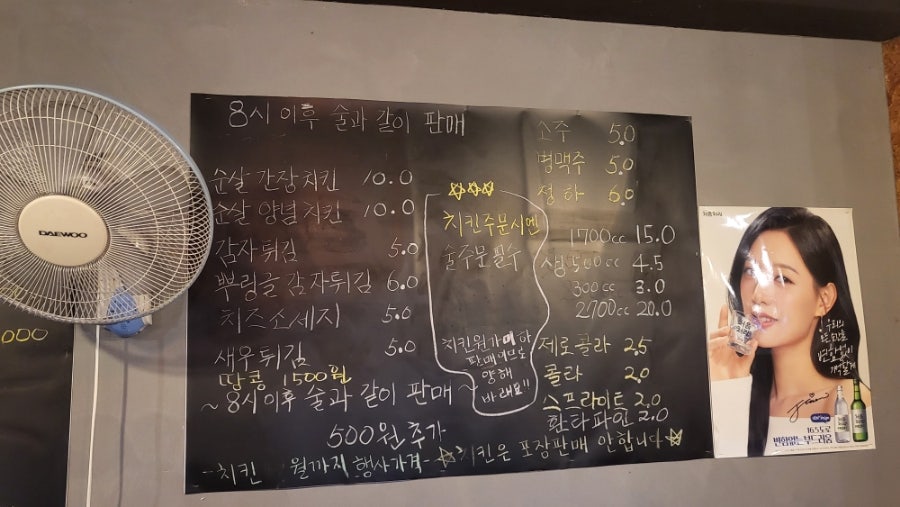 8시 이후 술과 같이 판매
순살 간장치킨 10.0
순살 양념치킨 10.0
감자튀김 5.0
뿌링글 감자튀김 6.0
치즈소세지 5.0
새우튀김 5.0
땅콩 1500원
~8시이후 술과 같이 판매~
500원추가
-치킨 월까지 행사가격-
☆치킨은 포장판매 안합니다☆
☆☆☆
치킨주문시엔
술주문필수
치킨원가미하
판매이므로
양해
바래요!!
소주 5.0
병맥주 5.0
청하 6.0
1700cc 15.0
생 500cc 4.5
300cc 3.0
2700cc 20.0
제로콜라 2.5
콜라 2.0
스프라이트 2.0
환타파인 2.0
DAEWOO
000
처음처럼
16.5도로
변함없는 부드러움